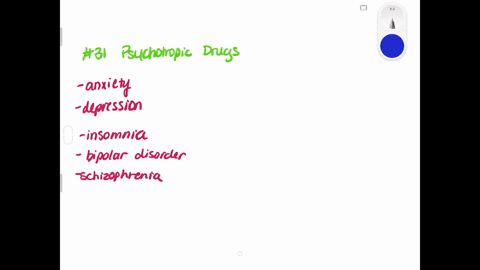 #31 Psychotropic Drugs
- anxiety
- depression
- insomnia
- bipolar disorder
- schizophrenia